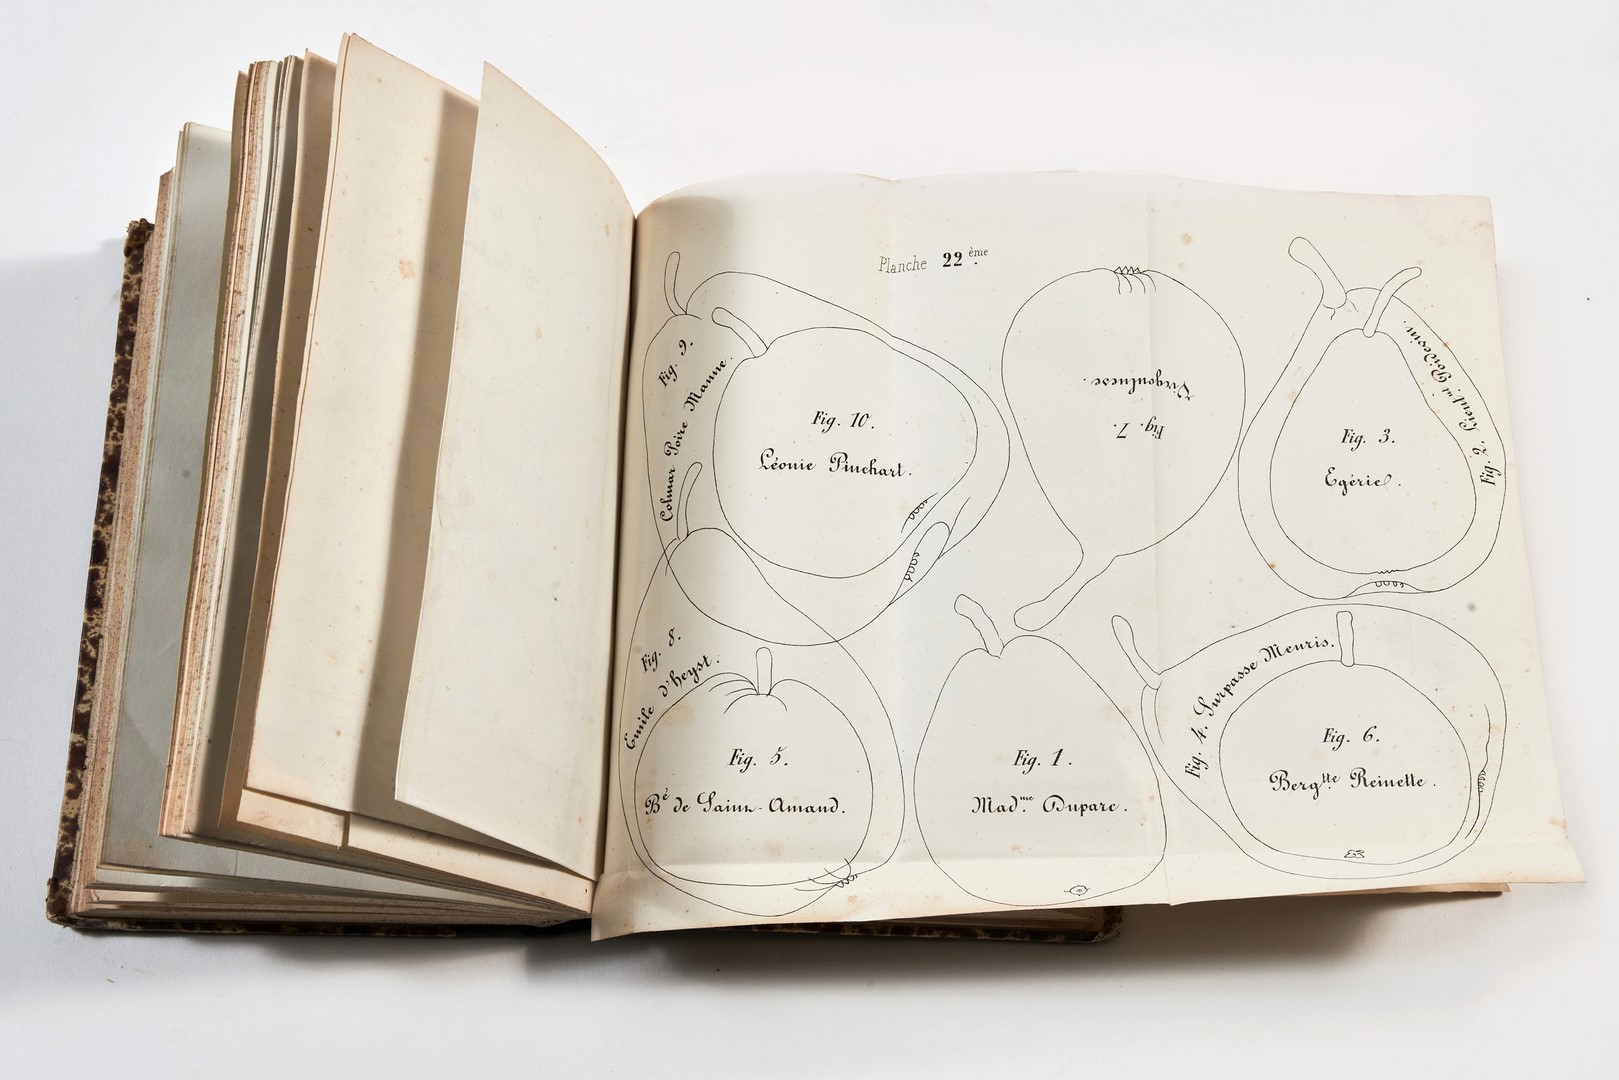 Planche 22ème
Fig. 9.
Colmar Poire Manne.
Fig. 10.
Léonie Pinchart.
Fig. 7.
Virgouleuse.
Fig. 2. Lieut.nt Poidevin.
Fig. 3.
Egérie.
Fig. 8.
Emile d'heyst.
Fig. 5.
Bé de Saint-Amand.
Fig. 1.
Mad.me Duparc.
Fig. 4. Surpasse Meuris.
Fig. 6.
Bergtte Reinette.